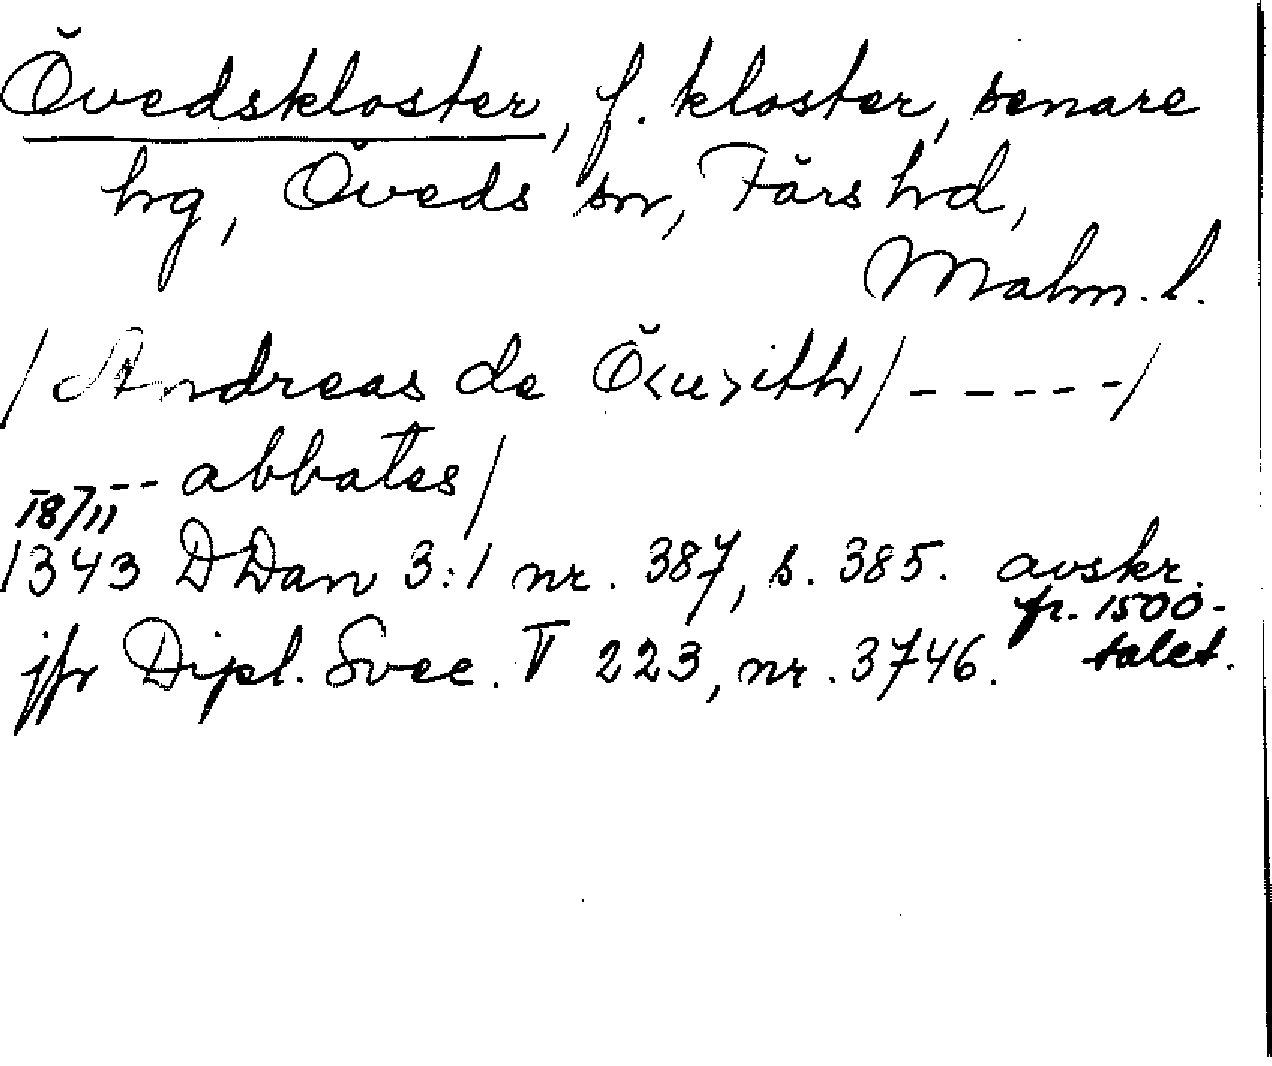 Övedskloster, f. kloster, senare
hg, Öveds sn, Färs hd,
Malm. l.
/Andreas de Ö<u>ith/-----/
--- abbates/
18/11
1343 DDan 3:1 nr. 387, s. 385. avskr.
fr. 1500-
talet.
jfr Dipl. Svec. V 223, nr. 3746.